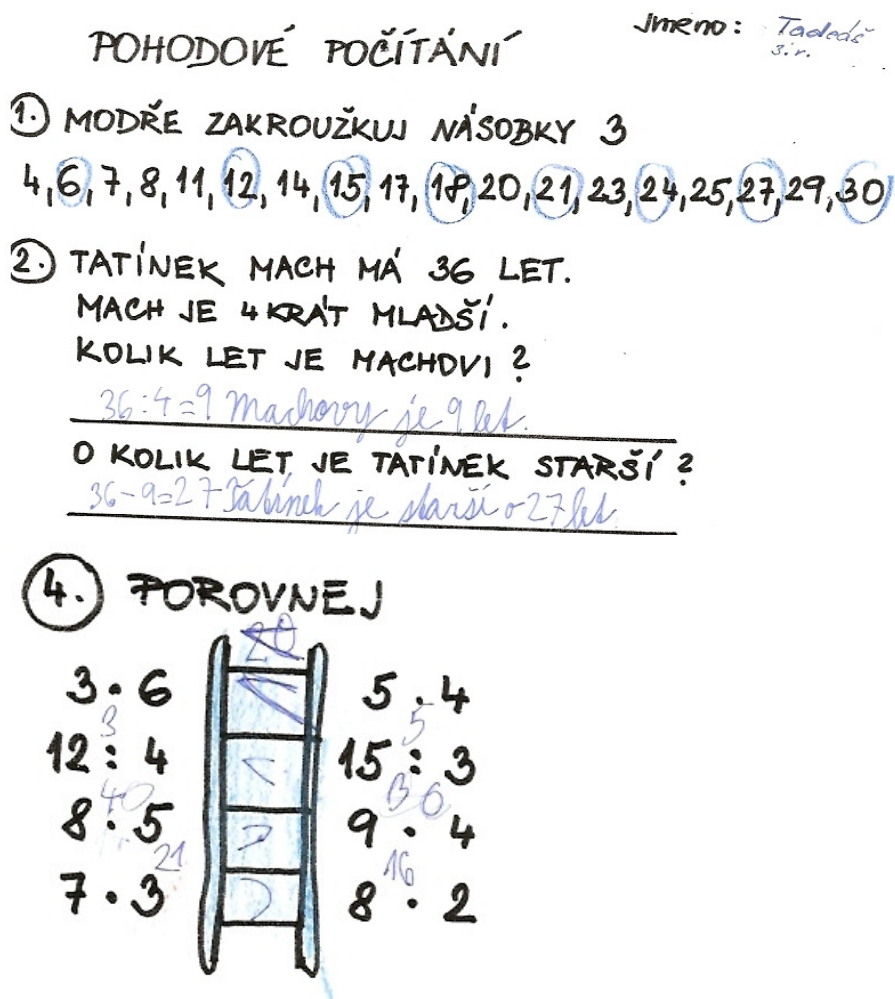 POHODOVÉ POČÍTÁNÍ
Jméno: Tadeáš
3.r.
1. MODŘE ZAKROUŽKUJ NÁSOBKY 3
4, 6, 7, 8, 11, 12, 14, 15, 17, 18, 20, 21, 23, 24, 25, 27, 29, 30
2. TATÍNEK MACH MÁ 36 LET.
MACH JE 4 KRÁT MLADŠÍ.
KOLIK LET JE MACHOVI?
36:4=9 Machovy je 9 let.
O KOLIK LET JE TATÍNEK STARŠÍ?
36-9=27 Tatínek je starší o 27 let
4. POROVNEJ
20
3 · 6 < 5 · 4
3 5
12 : 4 < 15 : 3
40 36
8 · 5 > 9 · 4
21 16
7 · 3 > 8 · 2